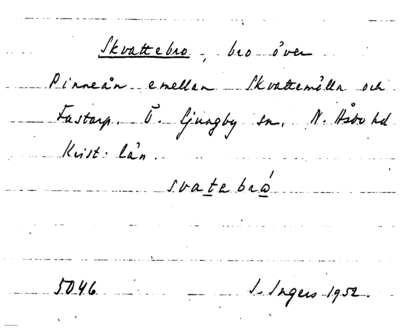 Skvattebro, bro över
Pinneån emellan Skvattemölla och
Fastarp. Ö. Ljungby sn. N. Åsbo hd
Krist. län.
svatebrå
5046 I. Ingers 1952.